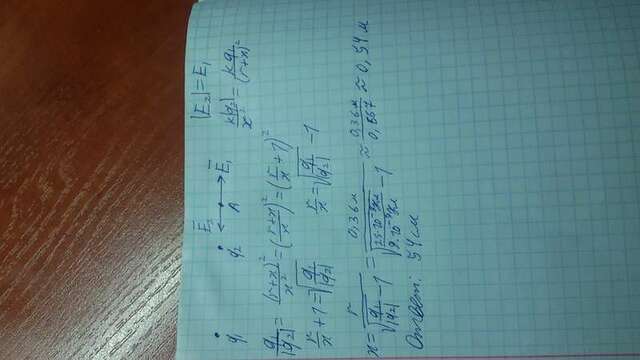 q₁ q₂ E₂ A E₁ |E₂| = E₁
k|q₂|/x² = kq₁/(r+x)²
q₁/|q₂| = (r+x)²/x² = ((r+x)/x)² = (r/x + 1)²
r/x + 1 = √(q₁/|q₂|) r/x = √(q₁/|q₂|) − 1
x = r/(√(q₁/|q₂|) − 1) = 0,36 м/(√(25·10⁻⁹Кл/9·10⁻⁹Кл) − 1) ≈ 0,36 м/0,667 ≈ 0,54 м
Ответ: 54 см